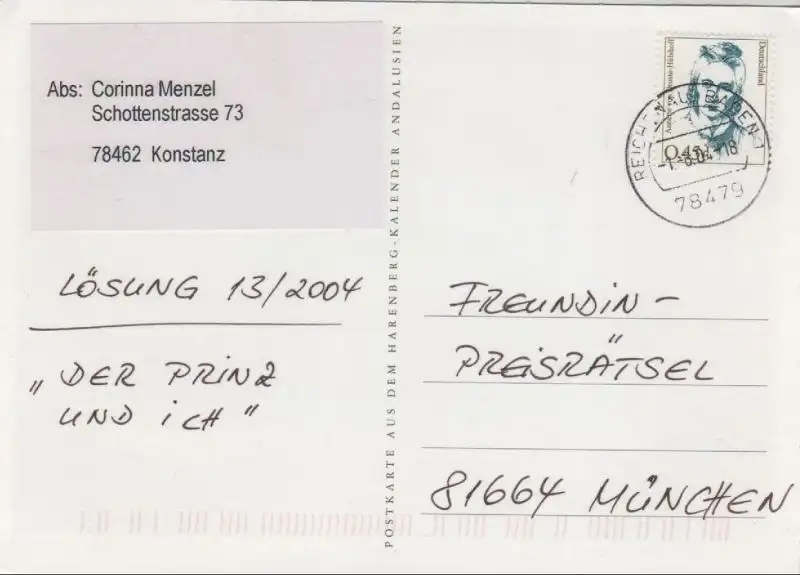 Abs: Corinna Menzel
Schottenstrasse 73
78462 Konstanz
LÖSUNG 13/2004
„DER PRINZ
UND ICH"
POSTKARTE AUS DEM HARENBERG-KALENDER ANDALUSIEN
Deutschland
Annette von Droste-Hülshoff
REICHENAU, BADEN 1
-1.-6.04-18
78479
FREUNDIN-
PREISRÄTSEL
81664 MÜNCHEN